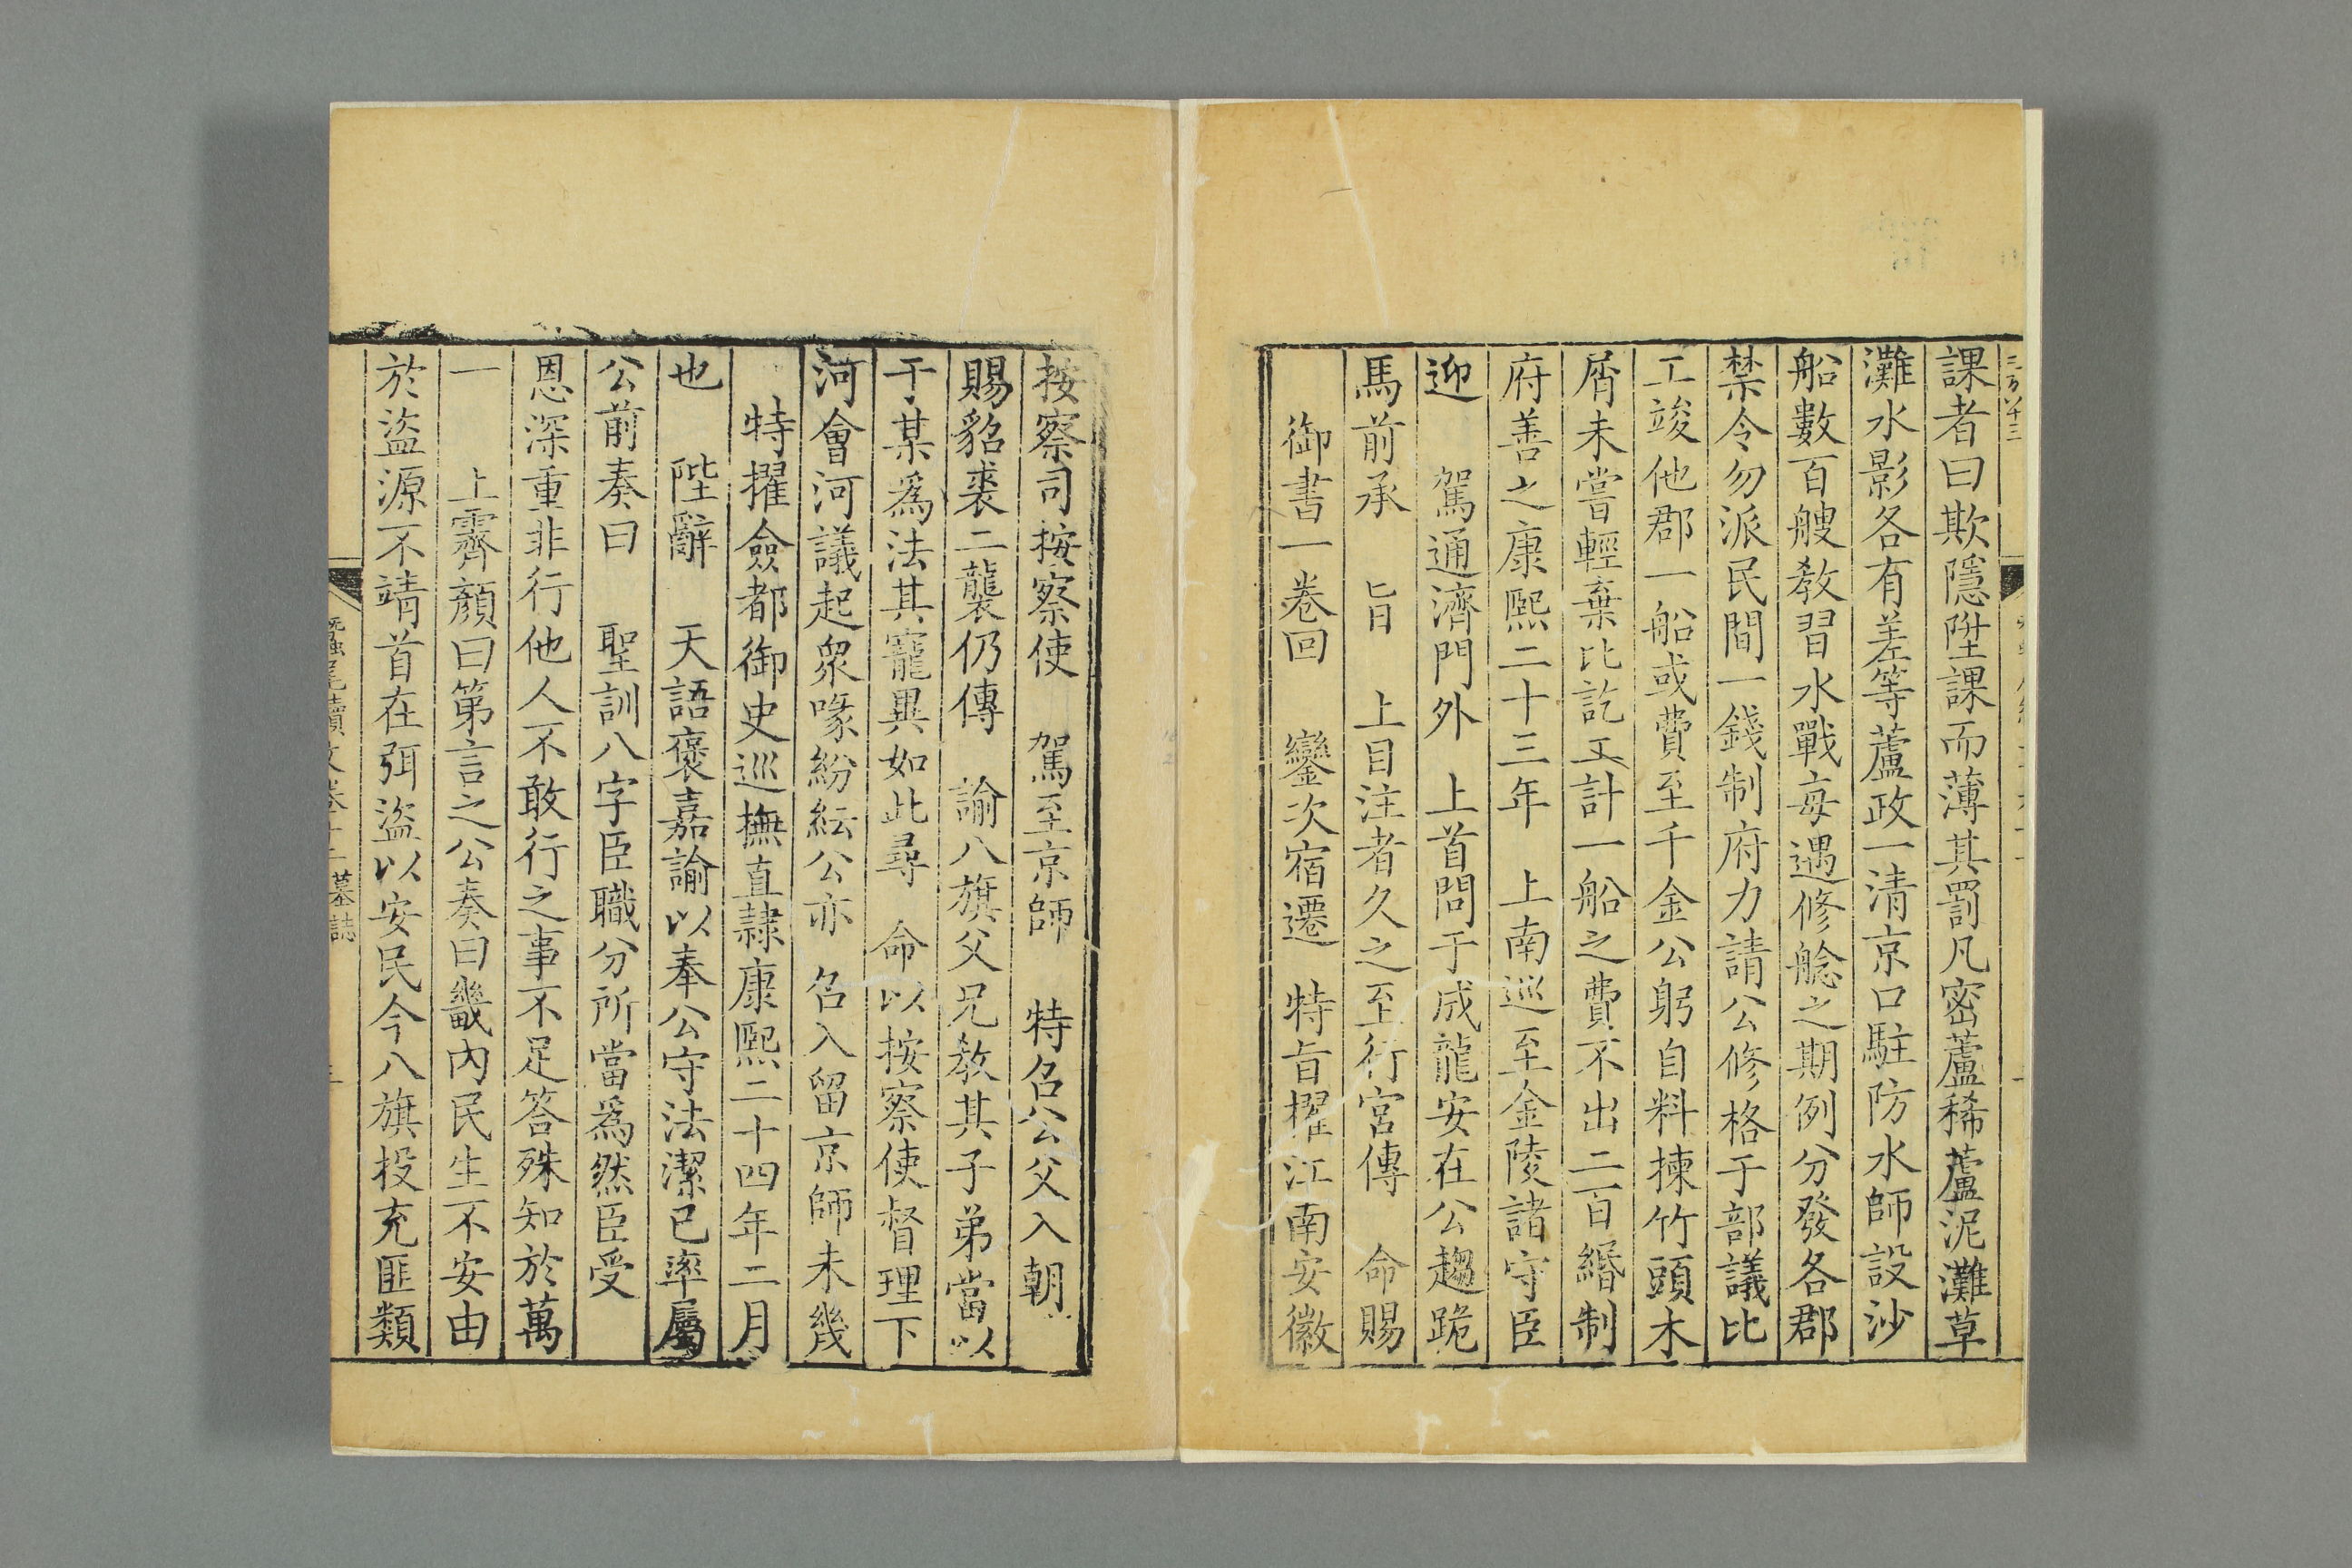 課者曰欺隱陞課而薄其罰凡密蘆稀蘆泥灘草
灘水影各有差等蘆政一清京口駐防水師設沙
船數百艘教習水戰每遇修艌之期例分發各郡
禁令勿派民間一錢制府力請公修格于部議比
工竣他郡一船或費至千金公躬自料揀竹頭木
屑未嘗輕棄比訖工計一船之費不出二百緡制
府善之康熙二十三年 上南巡至金陵諸守臣
迎 駕通濟門外 上首問于成龍安在公趨跪
馬前承 旨 上目注者久之至行宮傳 命賜
御書一卷回 鑾次宿遷 特旨擢江南安徽
按察司按察使 駕至京師 特召公父入朝
賜貂裘二襲仍傳 諭八旗父兄教其子弟當以
于某爲法其寵異如此尋 命以按察使督理下
河會河議起衆喙紛紜公亦 召入留京師未幾
特擢僉都御史巡撫直隷康熙二十四年二月
也 陛辭 天語褒嘉諭以奉公守法潔已率屬
公前奏曰 聖訓八字臣職分所當爲然臣受
恩深重非行他人不敢行之事不足答殊知於萬
一 上霽顏曰第言之公奏曰畿内民生不安由
於盜源不靖首在弭盜以安民今八旗投充匪類
墓誌